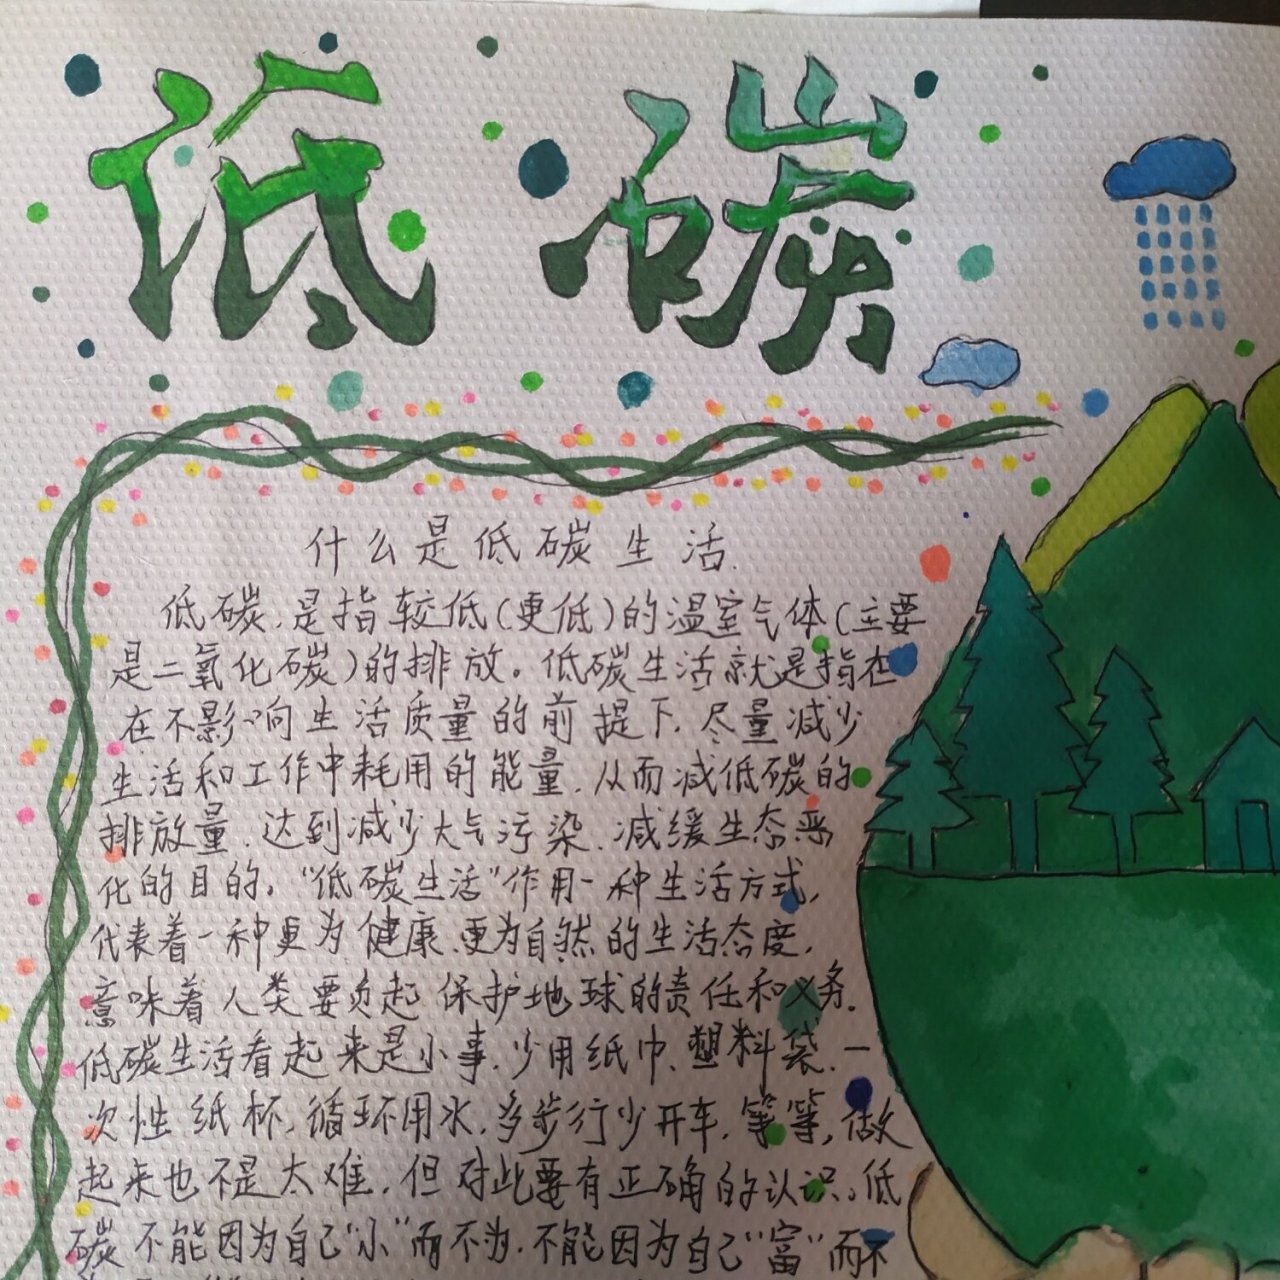 低碳
什么是低碳生活
低碳,是指较低(更低)的温室气体(主要
是二氧化碳)的排放。低碳生活就是指在
在不影响生活质量的前提下,尽量减少
生活和工作中耗用的能量,从而减低碳的
排放量,达到减少大气污染,减缓生态恶
化的目的。"低碳生活"作用一种生活方式,
代表着一种更为健康,更为自然的生活态度,
意味着人类要负起保护地球的责任和义务.
低碳生活看起来是小事,少用纸巾、塑料袋、一
次性纸杯,循环用水,多步行少开车,等等,做
起来也不是太难,但对此要有正确的认识。低
碳不能因为自己"小"而不为,不能因为自己"富"而不